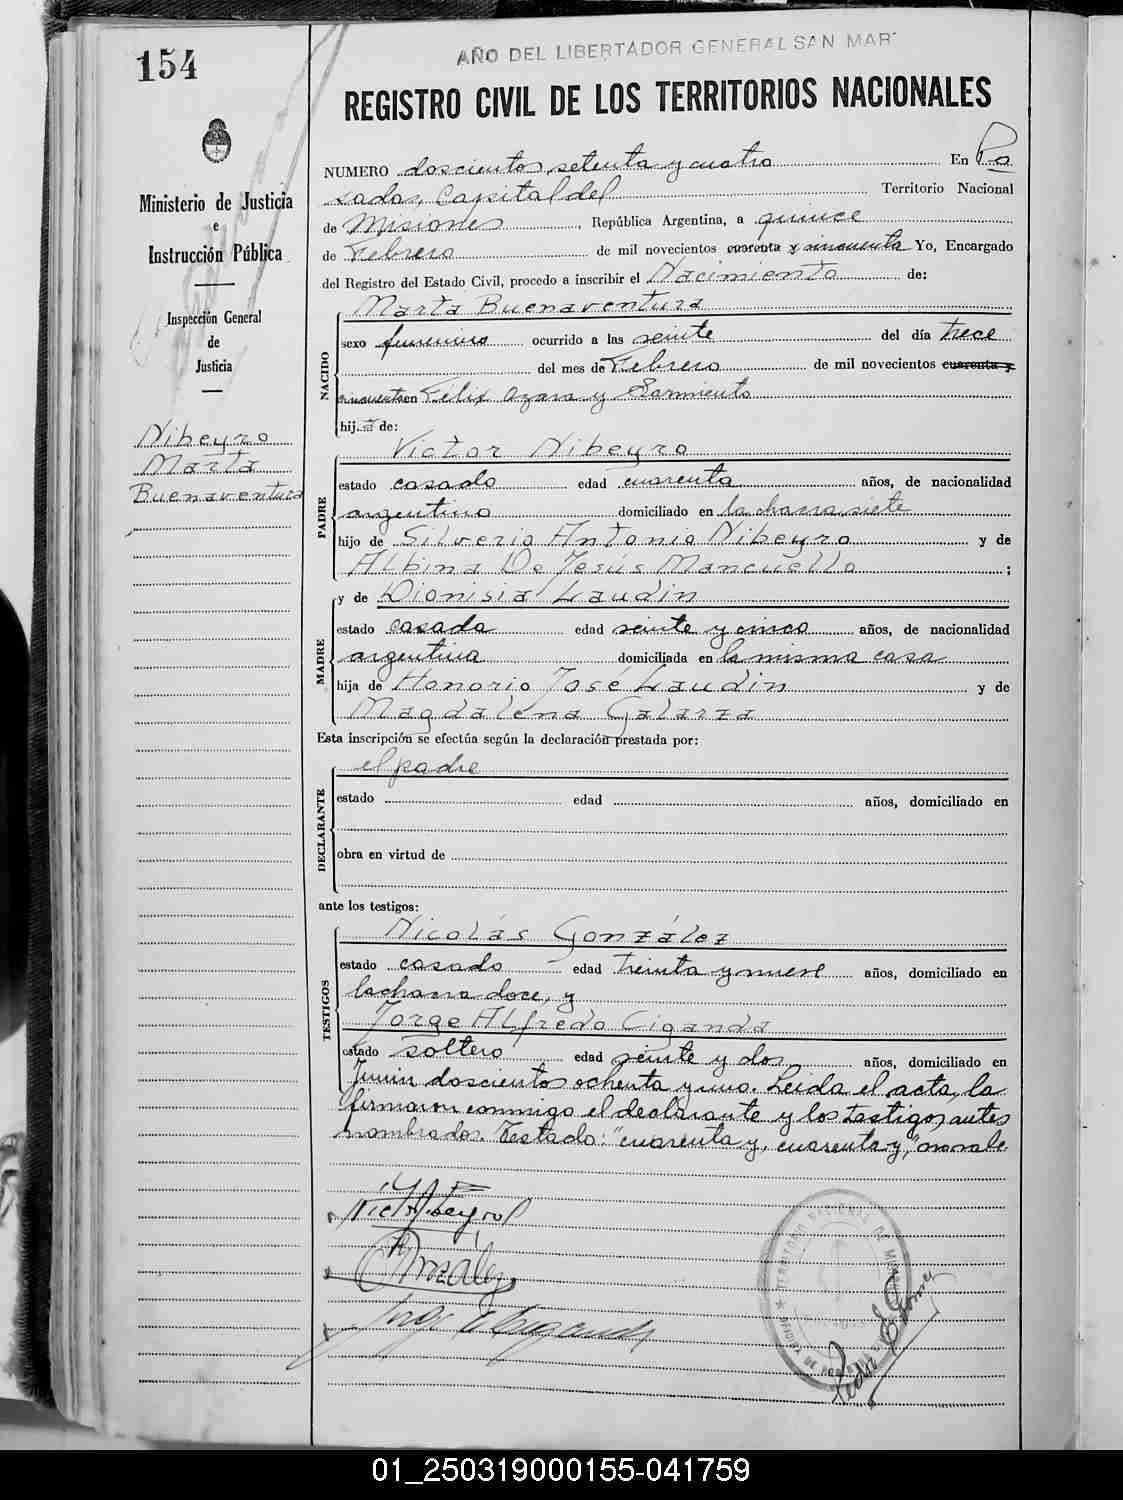 154
AÑO DEL LIBERTADOR GENERAL SAN MAR
REGISTRO CIVIL DE LOS TERRITORIOS NACIONALES
Ministerio de Justicia
e
Instrucción Pública
Inspección General
de
Justicia
Nibeyro
Marta
Buenaventura
NUMERO doscientos setenta y cuatro En Po
sadas, Capital del Territorio Nacional
de Misiones, República Argentina, a quince
de Febrero de mil novecientos cuarenta y cincuenta Yo, Encargado
del Registro del Estado Civil, procedo a inscribir el Nacimiento de:
Marta Buenaventura
NACIDO
sexo femenino ocurrido a las veinte del día trece
del mes de Febrero de mil novecientos cuarenta y
cincuenta en Félix Azara y Sarmiento
hija de:
Victor Nibeyro
PADRE
estado casado edad cuarenta años, de nacionalidad
argentino domiciliado en la chacra siete
hijo de Silverio Antonio Nibeyro y de
Albina De Jesús Mancuello ;
y de Dionisia Laudin
MADRE
estado casada edad veinte y cinco años, de nacionalidad
argentina domiciliada en la misma casa
hija de Honorio José Laudin y de
Magdalena Galarza
Esta inscripción se efectúa según la declaración prestada por:
el padre
DECLARANTE
estado edad años, domiciliado en
obra en virtud de
ante los testigos:
Nicolás González
TESTIGOS
estado casado edad treinta y nueve años, domiciliado en
la chacra doce, y
Jorge Alfredo Ciganda
estado soltero edad veinte y dos años, domiciliado en
Junin doscientos ochenta y uno. Leida el acta, la
firmaron conmigo el declarante y los testigos antes
nombrados. Testado: "cuarenta y, cuarenta y," no vale
TERRITORIO NACIONAL DE MISIONES
OFICINA DE
01_250319000155-041759